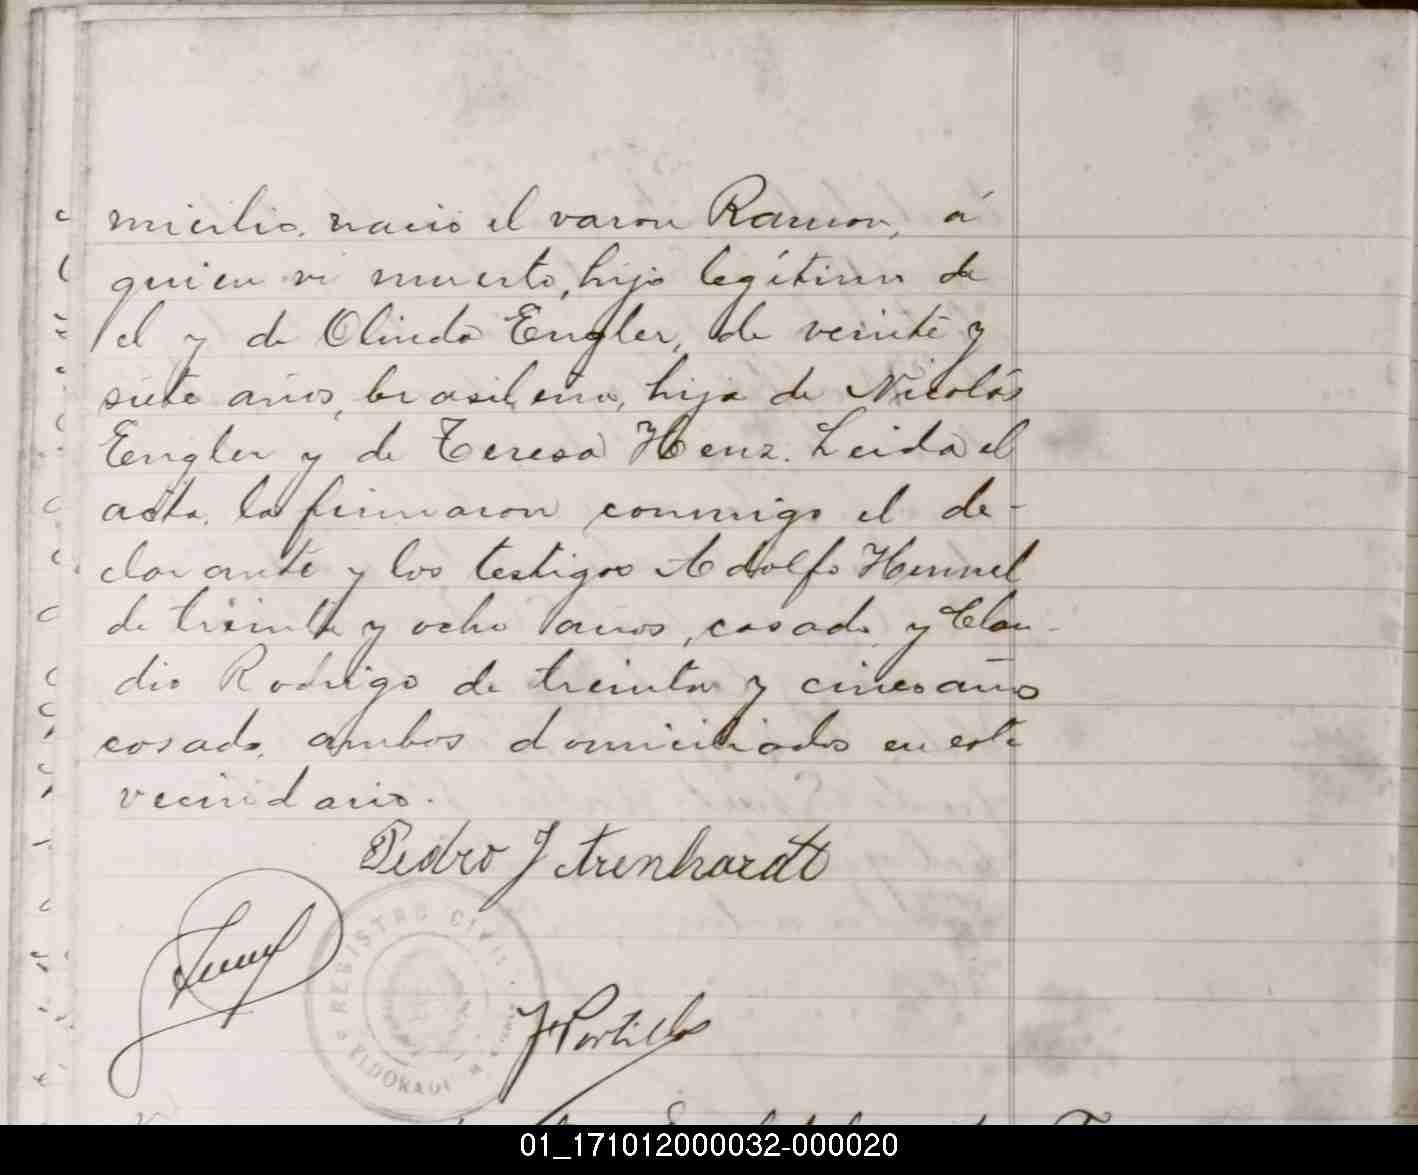 micilio, nació el varon Ramon, á
quien vi muerto, hijo legítimo de
el y de Olinda Engler, de veinte y
siete años, brasileña, hija de Nicolás
Engler y de Teresa Henz. Leida el
acta, la firmaron conmigo el de-
clarante y los testigos Adolfo Hummel
de treinta y ocho años, casado, y Clau-
dio Rodrigo de treinta y cinco años
casado, ambos domiciliados en este
vecindario.
Pedro J Arenhardt
REGISTRO CIVIL
J Portillo
ELDORADO
01_171012000032-000020